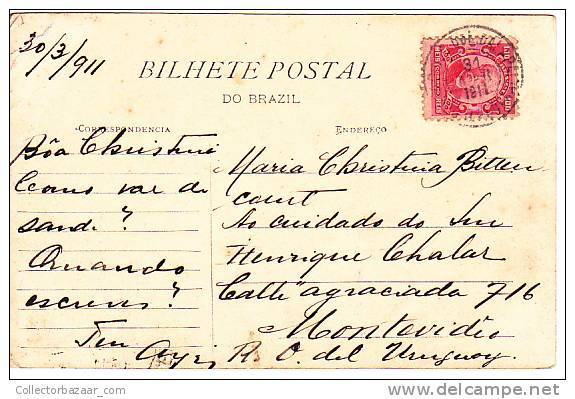 30/3/911
BILHETE POSTAL
DO BRAZIL
CORRESPONDENCIA
ENDEREÇO
Bôa Christina
Como vae de
saude?
Quando
escreves?
Teu
Maria Christina Bitten
court
Ao cuidado do Snr
Henrique Chalar
Calle agraciada 716
Montevidéo
R. O. del Uruguay.
CollectorBazaar.com
delcampe.net